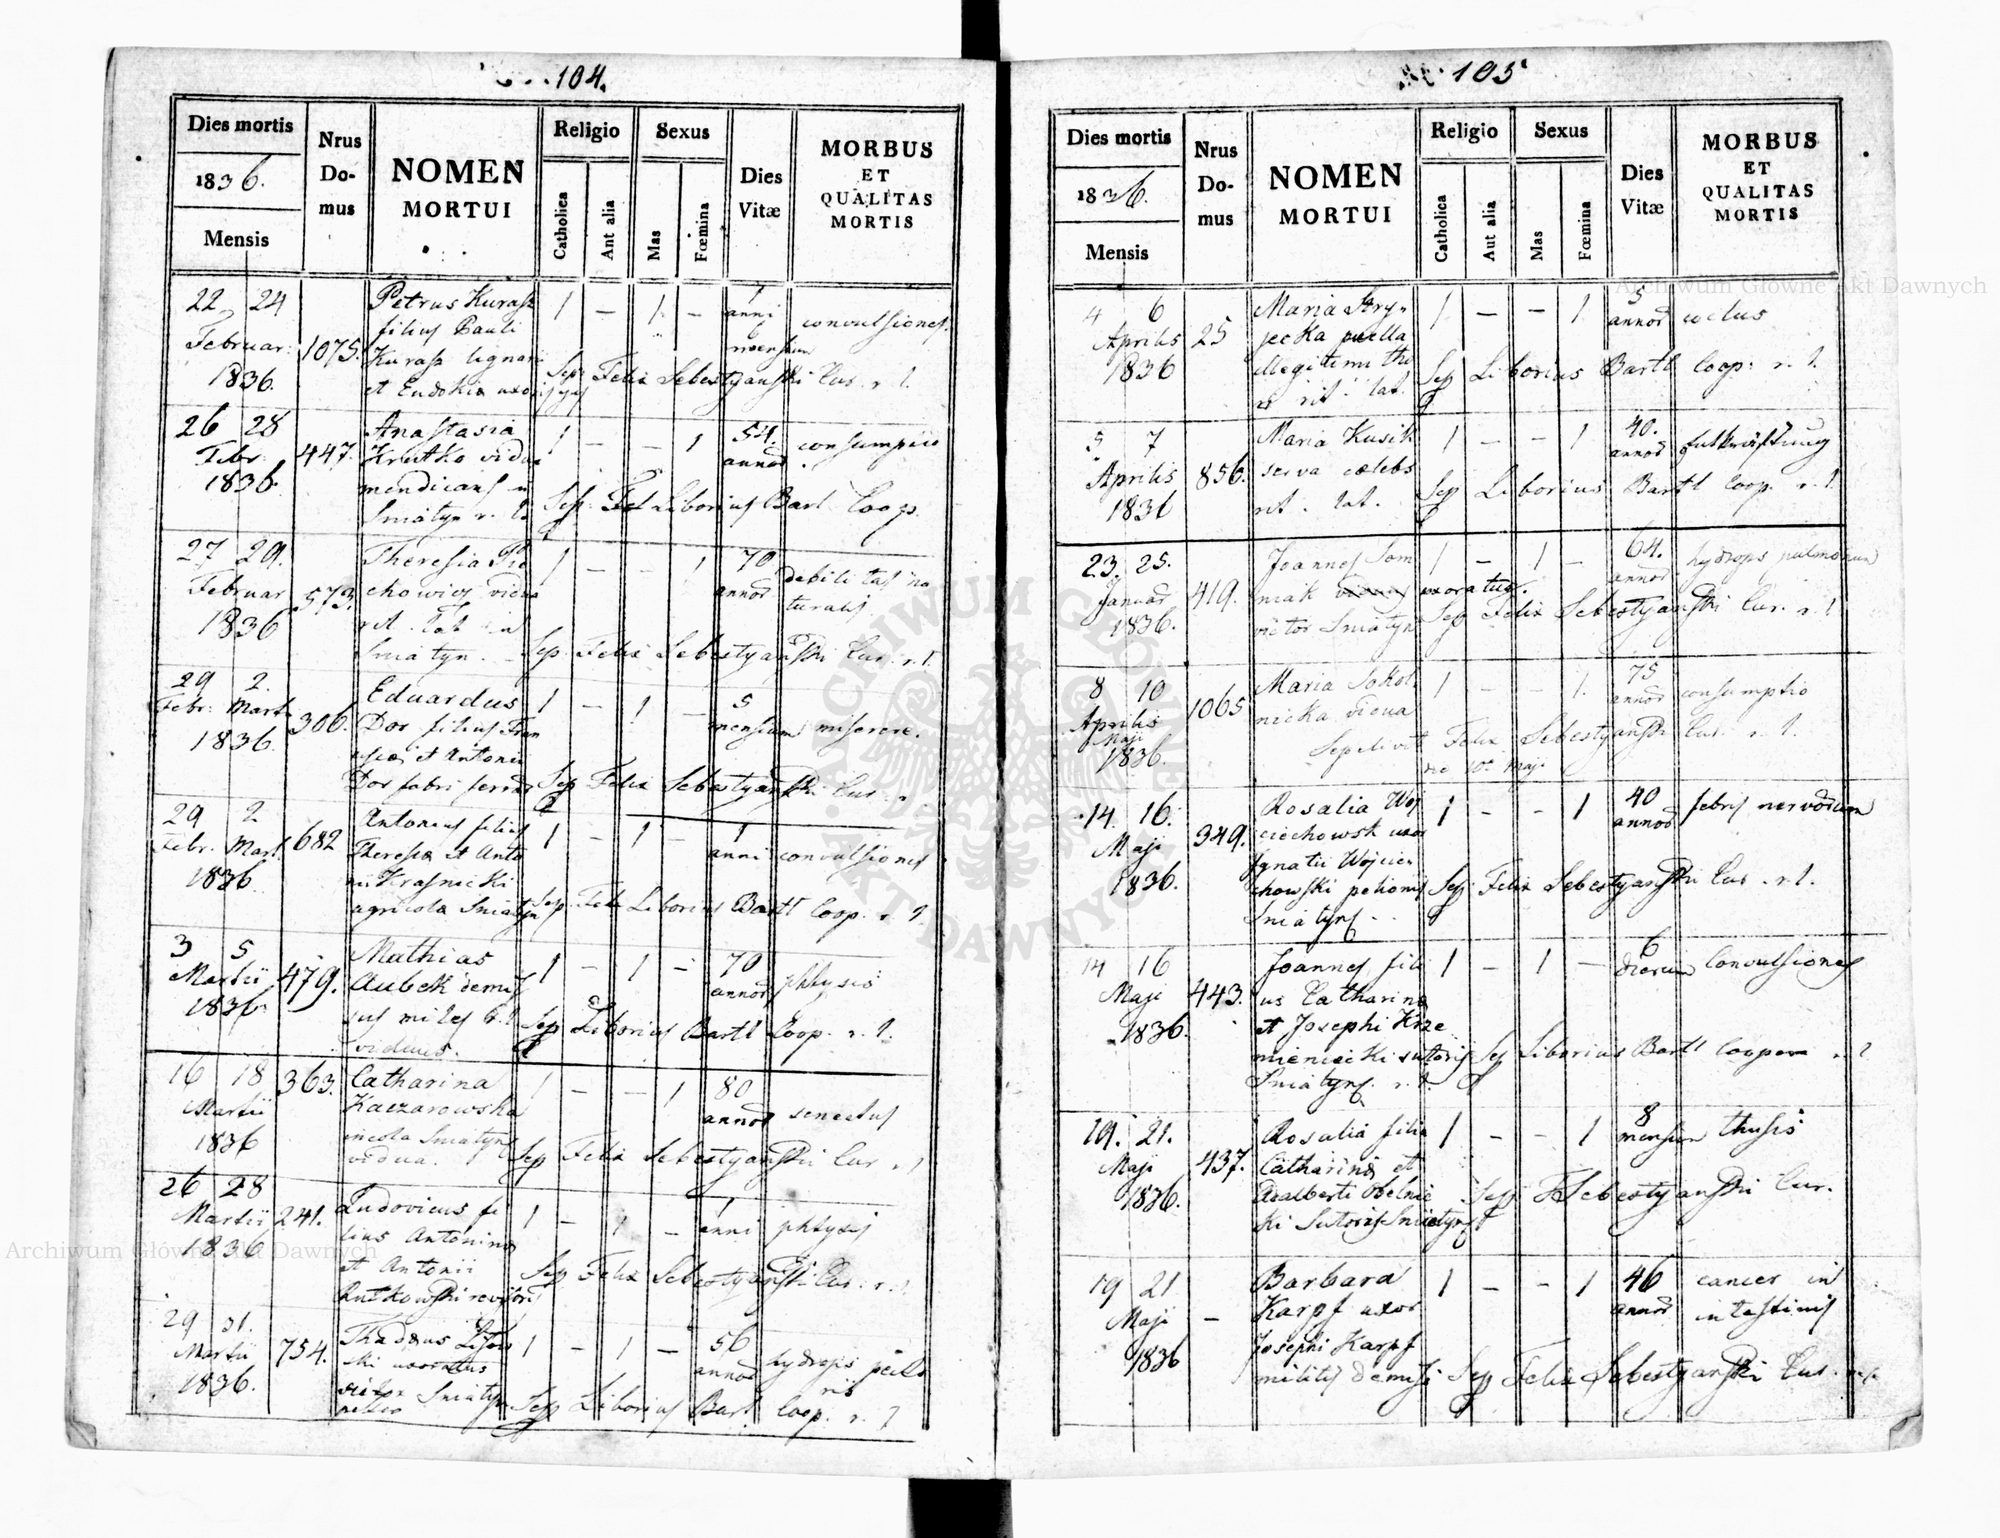 104.
Dies mortis
1836.
Mensis
Nrus Do- mus
NOMEN MORTUI
Religio
Catholica
Aut alia
Sexus
Mas
Fœmina
Dies Vitæ
MORBUS ET QUALITAS MORTIS
22 24 Petrus Kurasz 1 — 1 — 1 anni
Februar: 1075. filius Pauli 6 mensium convulsiones
1836. Kurasz
et Eudokia Sep. Felix Sebestyanski Cur. r. l.
26 28 Anastasia 1 — — 1 54. consumptio
Febr. 447. Krutko vidua annor
1836 mendicans
Sniatyn r. Sep. Liborius Bartl Coop.
27 29. Theresia 1 — — 1 70 debilitas na
Februar 573. chowicz vidua annor turalis
1836 rit. lat. in
Sniatyn. Sep. Felix Sebestyanski Cur. r. l.
29 2. Eduardus 1 — 1 — 5
Febr: Marti 306. Dor filius Fran mensium miserere.
1836. et Antonia
Dor fabri Sep Felix Sebestyanski Cur.
29 2 Antonius filius 1 — 1 — 1
Febr. Mart. 682 Theresia et Anto anni convulsiones
1836 nii Krasnicki
agricola Sniatyn Sep. Liborius Bartl Coop. r. l.
3 5 Mathias 1 — 1 — 70 phtysis
Martii 479. Aubek demis annor
1836 sus miles r. l. Sep Liborius Bartl Coop. r. l.
viduus.
16 18 363. Catharina 1 — — 1 80
Martii Kaczarowska annor senectus
1836 incola Sniatyn
vidua. Sep Felix Sebestyanski Cur r l
26 28 Ludovicus fi 1 — 1 — 1
Martii 241. lius Antonina anni phtysis
1836 et Antonii Sep Felix Sebestyanski Cur. r. l.
Rutkowski revisor
29 31. Thadæus 1 — 1 — 56
Martii 754. ski uxoratus annor hydrops pecto
1836. Sniatyn ris
Sep Liborius Bartl Coop. r. l
105
Dies mortis
1836.
Mensis
Nrus Do- mus
NOMEN MORTUI
Religio
Catholica
Aut alia
Sexus
Mas
Fœmina
Dies Vitæ
MORBUS ET QUALITAS MORTIS
4 6 Maria Stry- 1 — — 1 5
Aprilis 25 jecka puella annor
1836 illegitimi tho
ri rit. lat. Sep Liborius Bartl Coop: r. l.
5 7 Maria Kusik 1 — — 1 40. Entkräftung
Aprilis 856. serva cælebs annor
1836 rit. lat. Sep Liborius Bartl Coop. r. l.
23. 25. Joannes Som 1 — 1 — 64. hydrops pulmonum
Januar 419. niak uxoratus. annor
1836. Sniatyn Sep Felix Sebestyanski Cur. r. l
8 10 1065 Maria Sokol 1 — — 1. 75 consumptio
Aprilis nicka vidua annor
Maji Sepelivit Felix Sebestyanski Cur. r. l.
1836. die 10a Maji
14. 16. Rosalia Woj 1 — — 1 40 febris nervorum
Maji 349. ciechowsk uxor annor
Ignatii Wojcie
1836. chowski Sep Felix Sebestyanski Cur. r. l.
Sniatyns.
14 16 Joannes fili 1 — 1 — 6 Convulsiones
Maji 443. us Catharina dierum
1836. et Josephi Krze
mienicki sutoris Sep Liborius Bartl Cooper r l
Sniatyns. r. l.
19. 21. Rosalia filia 1 — — 1 8 thusis
Maji 437. Catharina et mensium
1836. Adalberti Obelnic Sep F. Sebestyanski Cur.
ki Sutoris Sniatyns
19 21 Barbara 1 — — 1 46 cancer in
Maji — Karpf uxor annor intestinis
1836 Josephi Karpf
militis dimissi Sep Felix Sebestyanski Cur.
Archiwum Główne Akt Dawnych
Archiwum Główne Akt Dawnych
ARCHIWUM GŁÓWNE AKT DAWNYCH